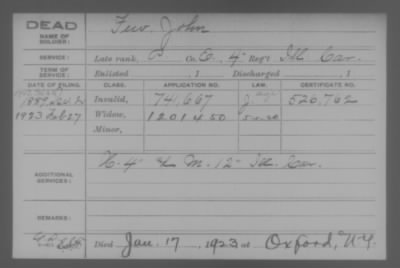 DEAD
NAME OF SOLDIER: Few, John
SERVICE: Late rank, P Co. E, 4 Reg't Ill Cav.
TERM OF SERVICE: Enlisted , 1 Discharged , 1
DATE OF FILING. CLASS. APPLICATION NO. LAW. CERTIFICATE NO.
Invalid, 741,667 J 526,762
1923 Feb 27 Widow, 1201450
Minor,
ADDITIONAL SERVICES: K. 4 & M. 12 Ill. Cav.
REMARKS:
Died Jan. 17, 1923 at Oxford, N.Y.